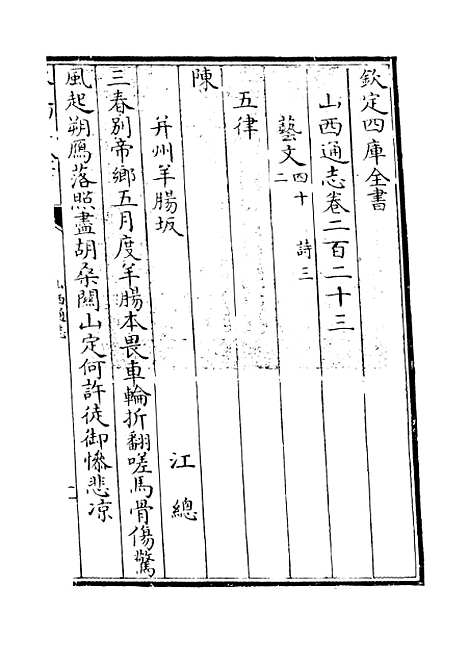 欽定四庫全書
山西通志卷二百二十三
藝文四十二 詩三
五律
陳
并州羊腸坂 江總
三春别帝鄉五月度羊腸本畏車輪折翻嗟馬骨傷驚
風起朔鴈落照盡胡桑關山定何許徒御慘悲凉
山西通志